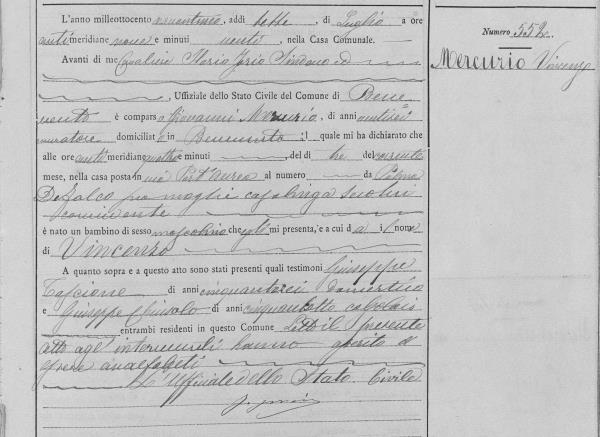 Numero 552
Mercurio Vincenzo
L'anno milleottocento novantasei, addì sette, di Luglio a ore
antimeridiane nove e minuti venti, nella Casa Comunale.
Avanti di me Cavaliere
, Uffiziale dello Stato Civile del Comune di Bene
vento è comparso Giovanni Mercurio, di anni
muratore domiciliato in Benevento, il quale mi ha dichiarato che
alle ore antimeridiane quattro e minuti, del dì tre del corrente
mese, nella casa posta in via Port'Aurea al numero da
De Falco sua moglie casalinga seco lui
convivente
è nato un bambino di sesso mascolino che egli mi presenta, e a cui dà il nome
di Vincenzo
A quanto sopra e a questo atto sono stati presenti quali testimoni Giuseppe
Tascione di anni domestico
e Giuseppe di anni cinquantotto
entrambi residenti in questo Comune Letto il presente
atto agl'intervenuti hanno di
essere analfabeti
L'Uffiziale dello Stato Civile